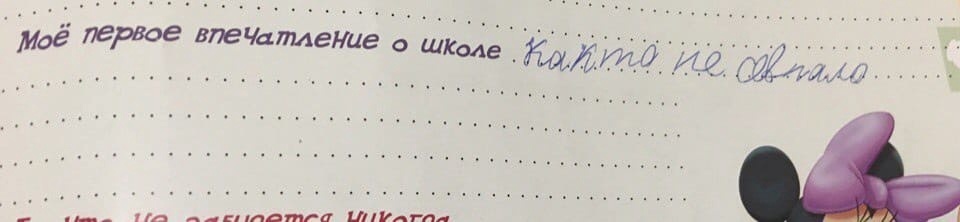 Моё первое впечатление о школе Както не совпало
не забудется никогда